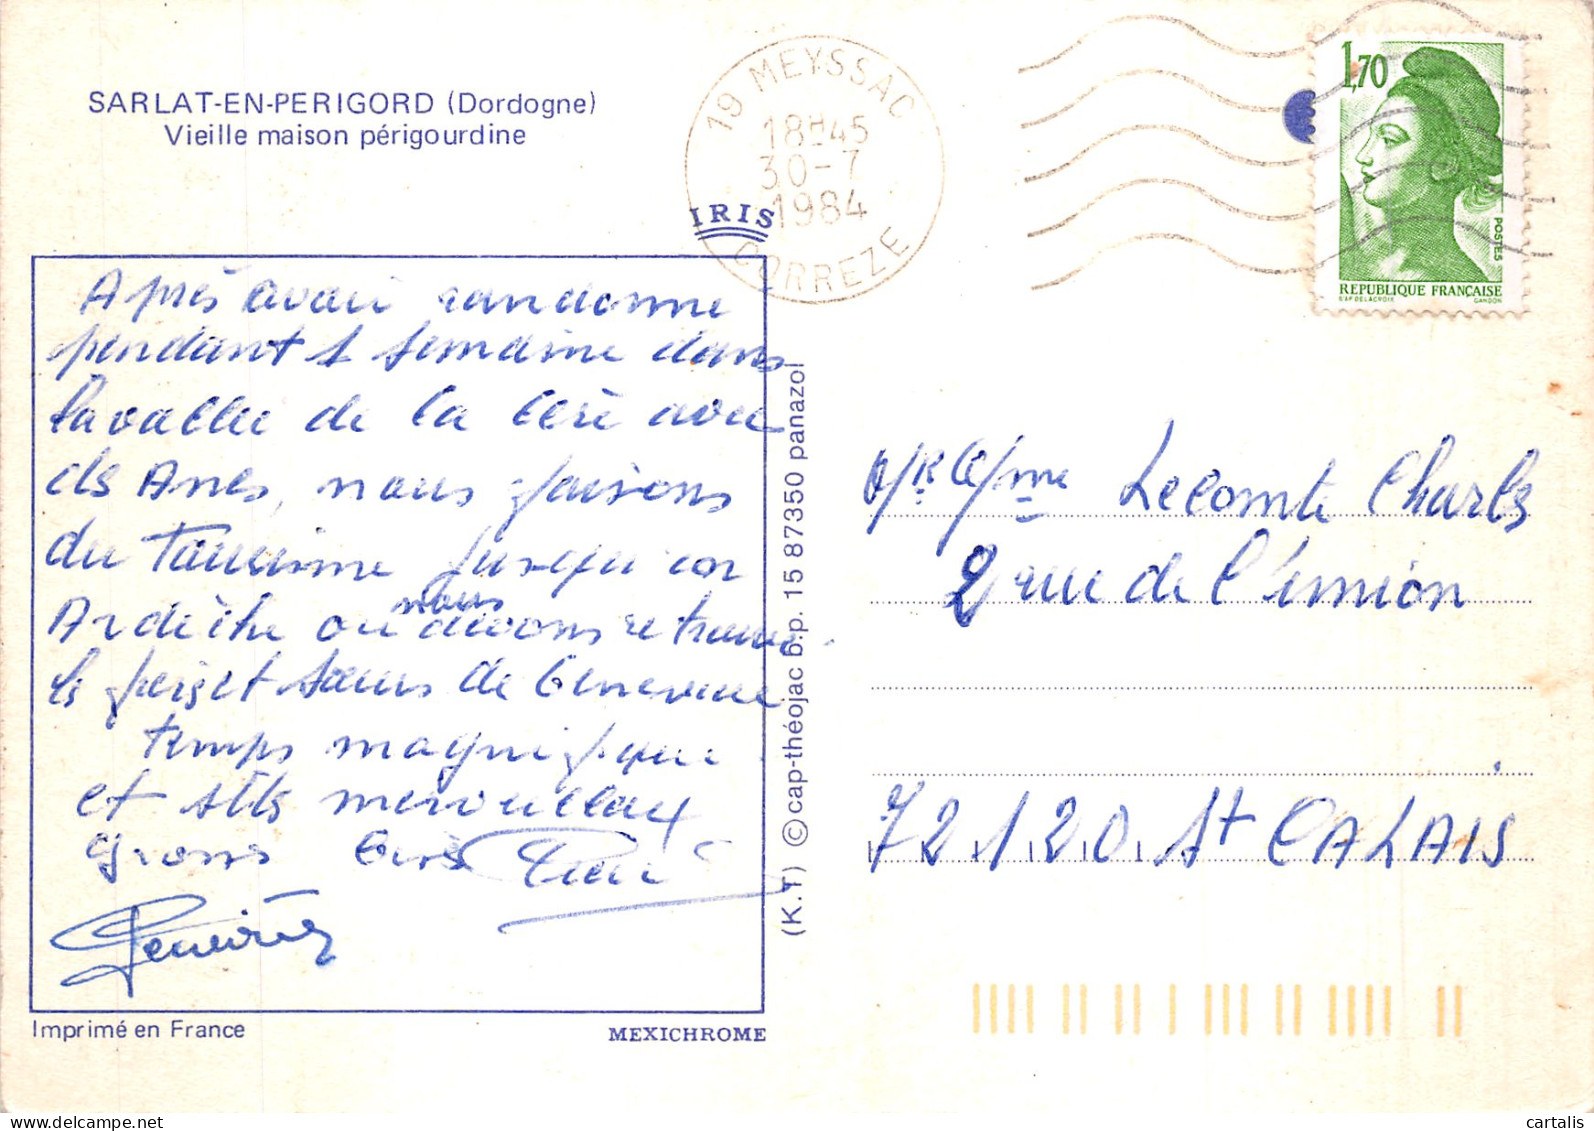 SARLAT-EN-PERIGORD (Dordogne)
Vieille maison périgourdine
19 MEYSSAC
18H45
30-7
1984
CORREZE
IRIS
1,70
POSTES
REPUBLIQUE FRANÇAISE
D'AP DELACROIX GANDON
Après avoir randonné
pendant 1 semaine dans
la vallée de la Cère avec
des Anes, nous faisons
du Tourisme jusqu'en
Ardèche où nous devons retrouver
les et sœurs de Geneviève
temps magnifique
et sites merveilleux
Gross bises
Geneviève
(K.T) © cap-théojac b.p. 15 87350 panazol
Imprimé en France
MEXICHROME
Lecomte Charles
2 rue de l'union
72120 St CALAIS
cartalis
www.delcampe.net